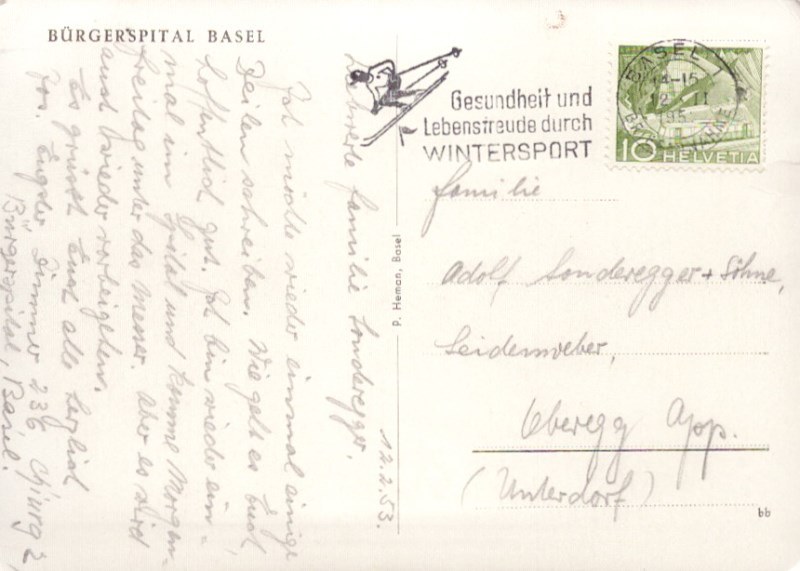 BÜRGERSPITAL BASEL
Gesundheit und
Lebensfreude durch
WINTERSPORT
BASEL 1
14-15
12 II
195
10 HELVETIA
P. Heman, Basel
12.2.53.
familie Sonderegger.
Ich möchte wieder einmal einige
Zeilen schreiben. Wie geht es Euch,
hoffentlich gut. Ich bin wieder ein-
mal im Spital und komme Morgen-
Freitag unter das Messer. Aber es wird
auch wieder vorbeigehen.
Es grüsst Euch alle herzlich
Zimmer 236 Chirurg 2
Bürgerspital, Basel.
Familie
Adolf Sonderegger + Söhne,
Seidenweber,
Oberegg App.
(Unterdorf)
bb